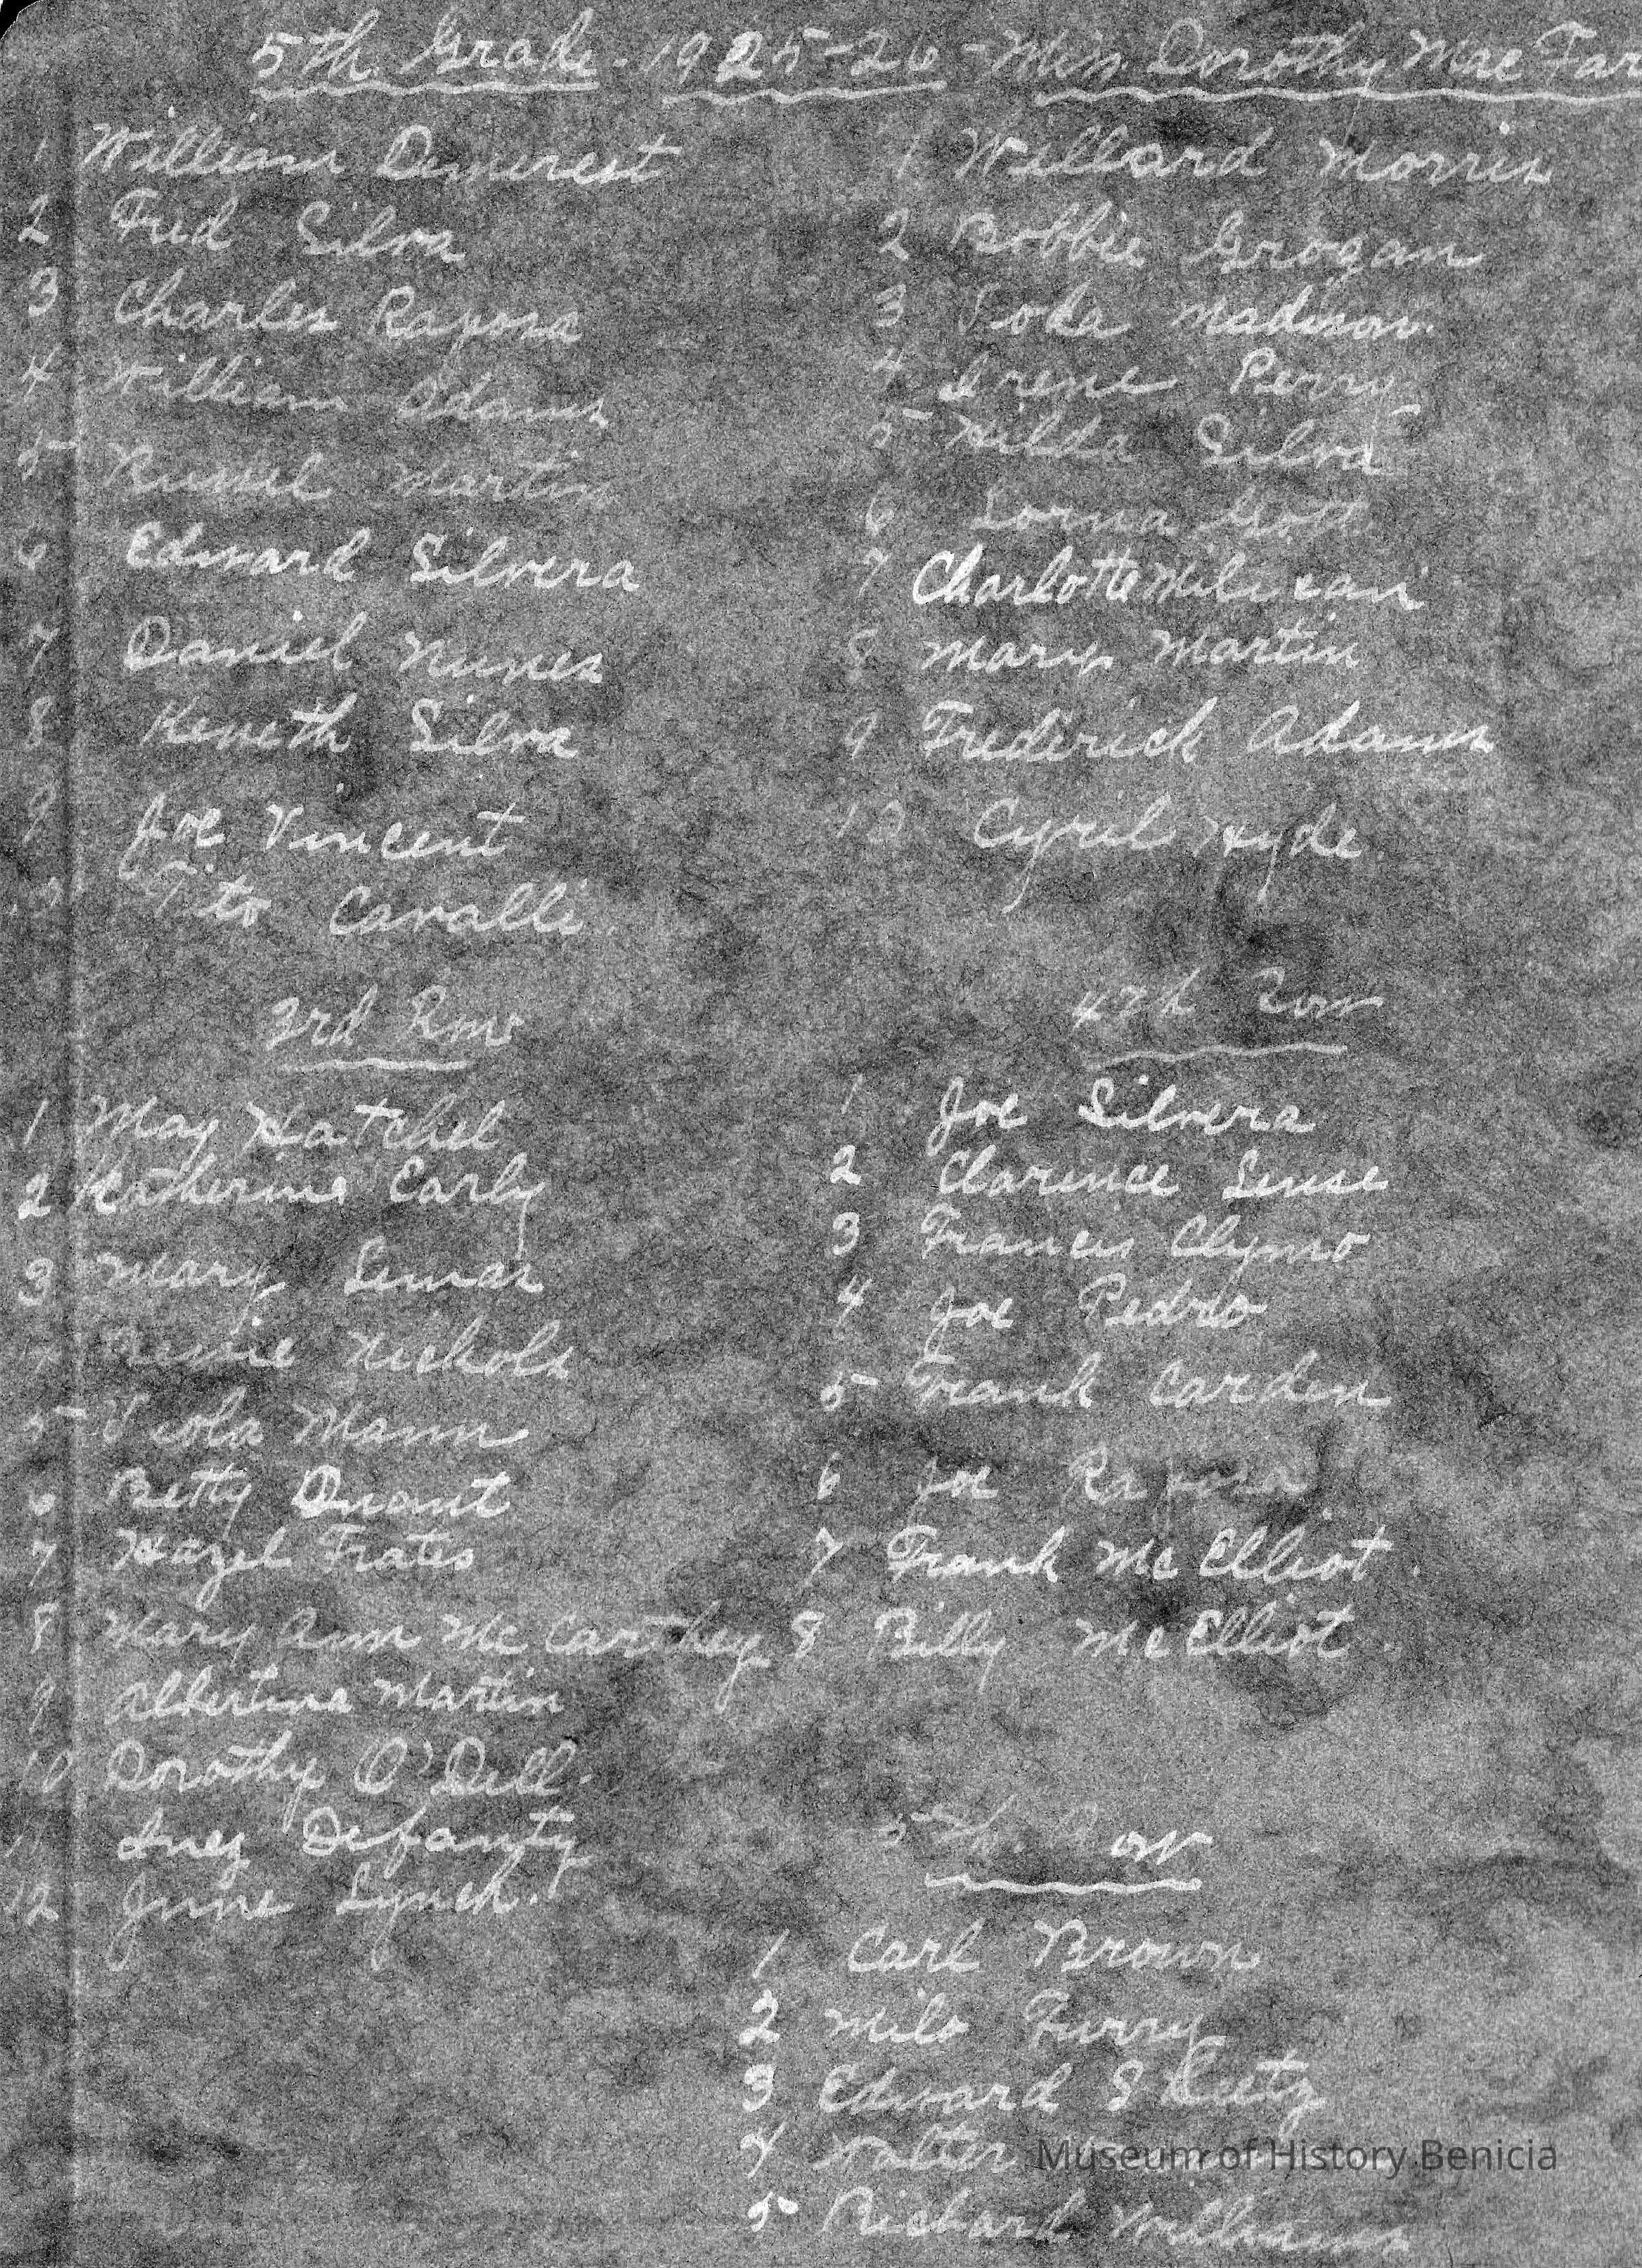 5th. Grade - 1925-26 - Miss. Dorothy Mac Far
1 William Demerest
2 Fred Silva
3 Charles Raposa
4 William Adams
5 Russel Martin
6 Edward Silvera
7 Daniel Nunes
8 Keneth Silva
9 Joe Vincent
Tito Cavalli.
1 Willard Morris
2 Bobbie Grogan
3 Madison.
4 Irene Perry
5 Hilda Silva
6 Lorna
7 Charlotte
8 Mary Martin
9 Frederick Adams
10 Cyril Hyde
3rd Row
1 May Hatchel
2 Katherine Early
3 Mary
4 Nichols
5 Viola Mann
6 Betty
7 Hazel Frates
8 Mary Ann McCarthey
9 Albertina Martin
10 Dorothy O'Dell.
11 Inez Defanty
12 June Lynch.
4th Row
1 Joe Silvera
2 Clarence
3 Francis Clymo
4 Joe Pedro
5 Frank Carden
6 Joe Raposa
7 Frank McElliot.
8 Billy McElliot.
5th. Row
1 Carl Brown
2 Milo Furry
3 Edward
4 Walter
5 Richard Williams
Museum of History Benicia